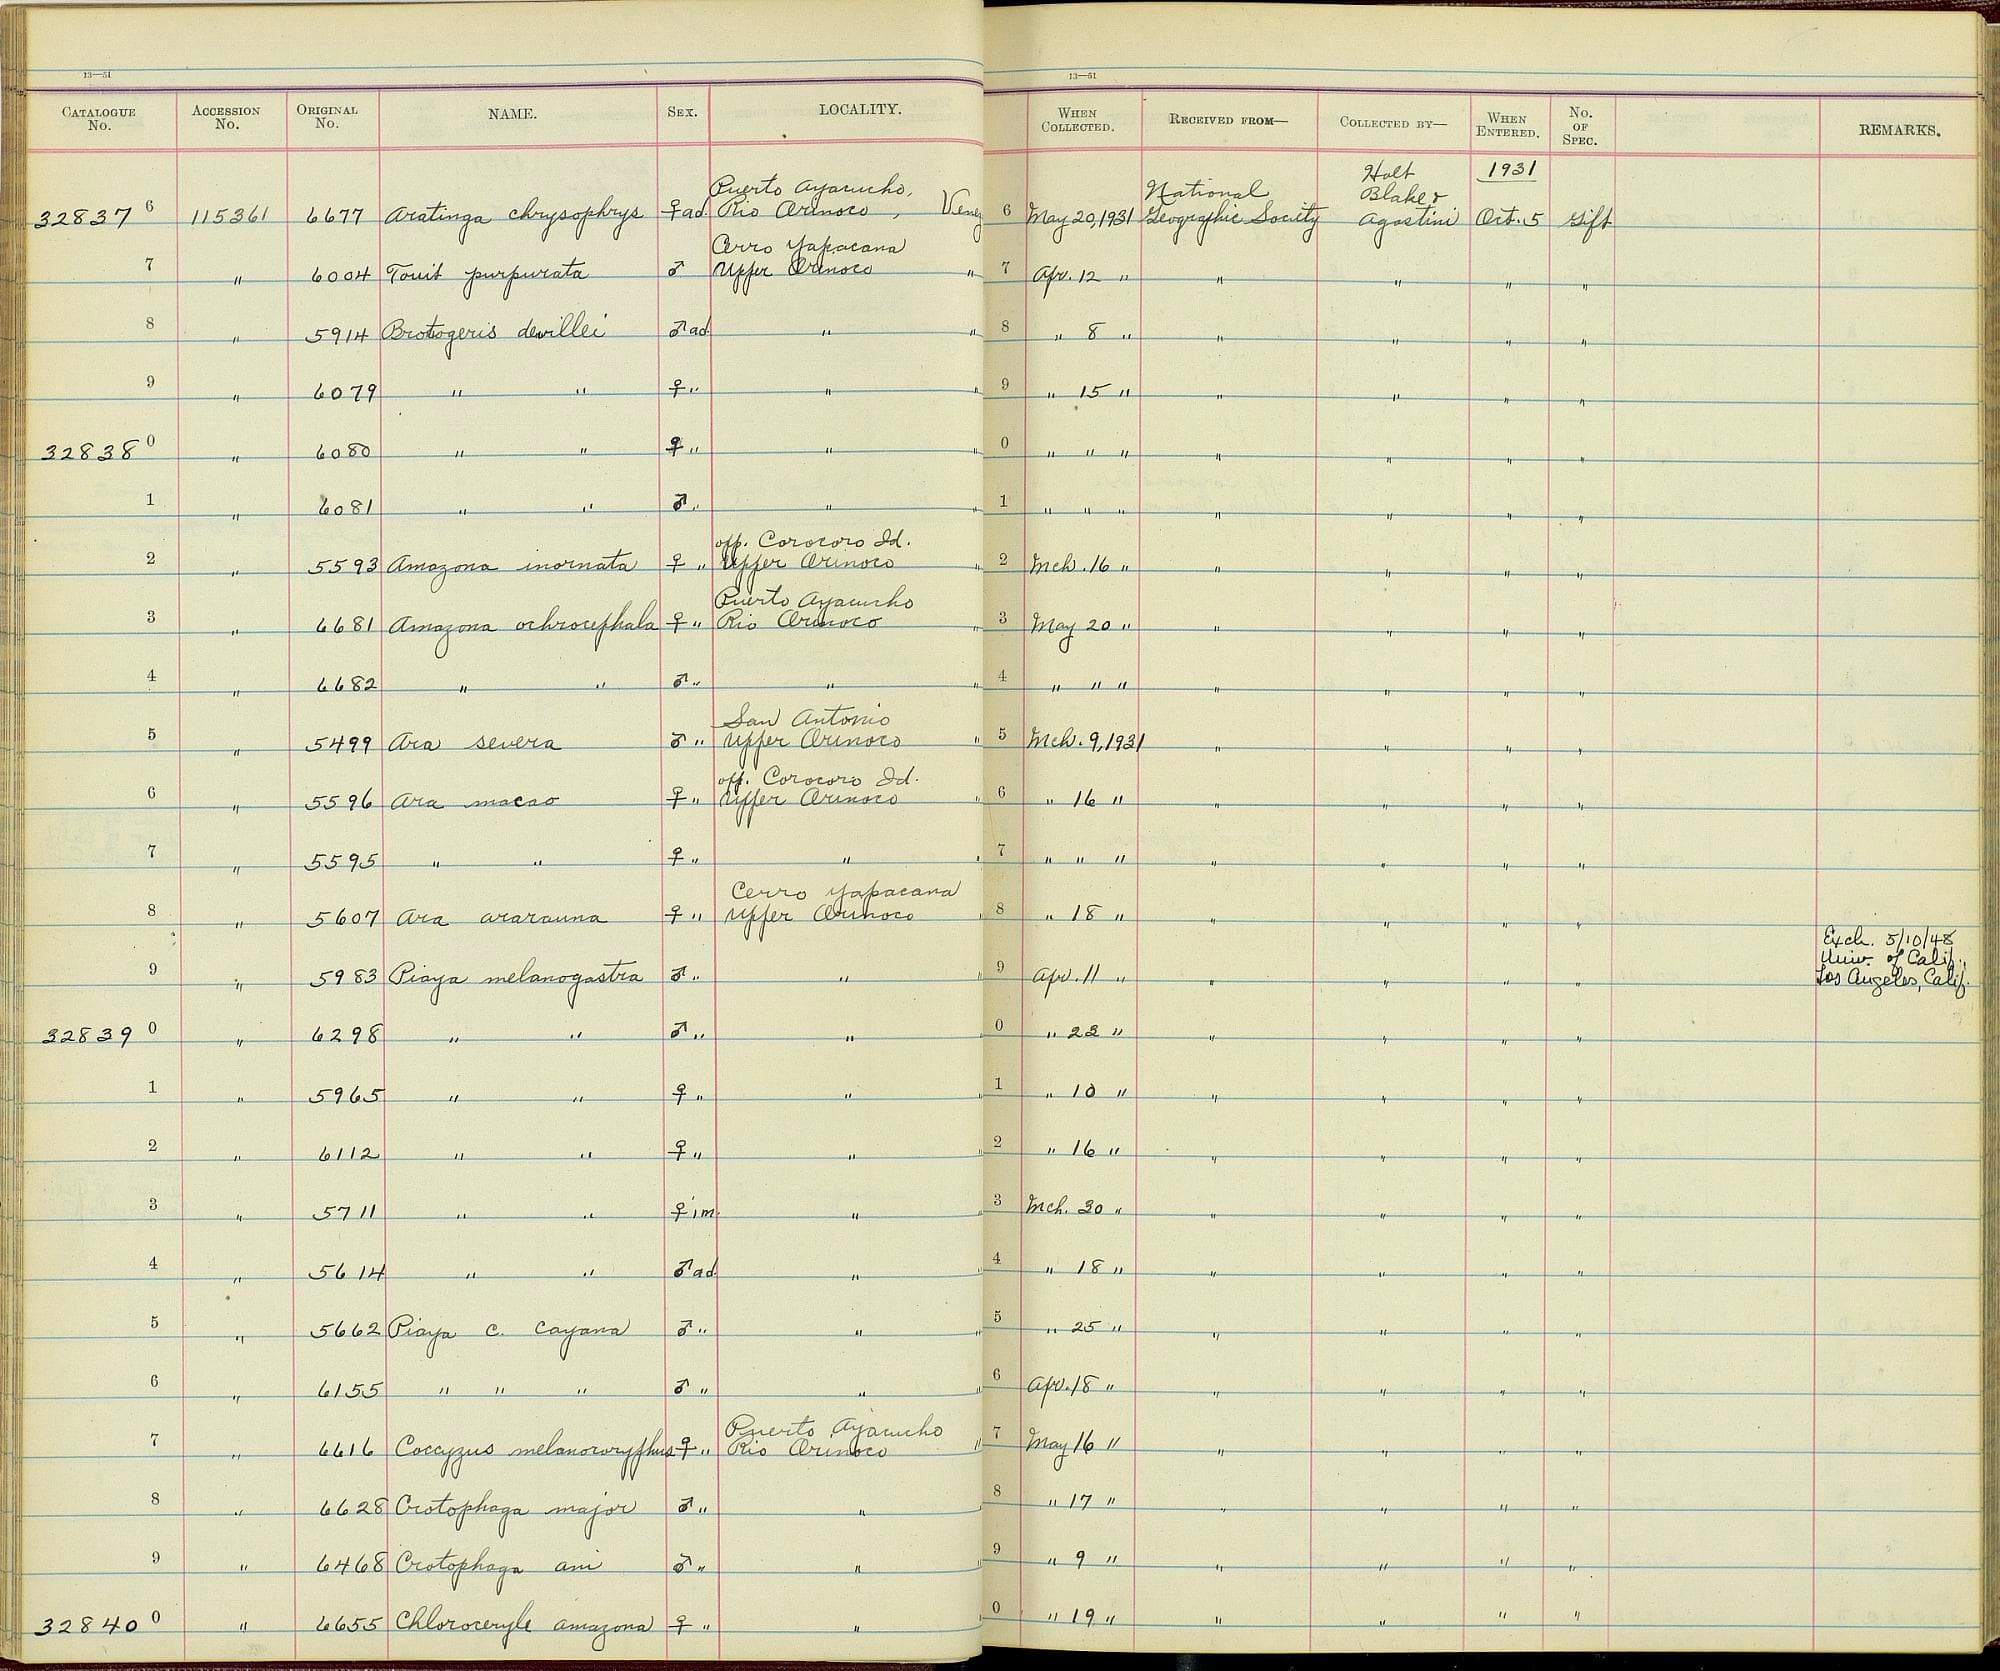 13—51
13—51
CATALOGUE No. ACCESSION No. ORIGINAL No. NAME. SEX. LOCALITY. WHEN COLLECTED. RECEIVED FROM— COLLECTED BY— WHEN ENTERED. No. OF SPEC. REMARKS.
Puerto Ayacucho, National Holt Blake & 1931
32837 6 115361 6677 Aratinga chrysophrys ♀ ad. Rio Orinoco, Venez 6 May 20, 1931 Geographic Society Agostini Oct. 5 Gift
Cerro Yapacana
7 " 6004 Touit purpurata ♂ Upper Orinoco " 7 Apr. 12 " " " " "
8 " 5914 Brotogeris devillei ♂ ad. " " 8 " 8 " " " " "
9 " 6079 " " ♀ " " " 9 " 15 " " " " "
32838 0 " 6080 " " ♀ " " " 0 " " " " " " "
1 " 6081 " " ♂ " " " 1 " " " " " " "
opp. Corocoro Id.
2 " 5593 Amazona inornata ♀ " Upper Orinoco " 2 Mch. 16 " " " " "
Puerto Ayacucho
3 " 6681 Amazona ochrocephala ♀ " Rio Orinoco " 3 May 20 " " " " "
4 " 6682 " " ♂ " " " 4 " " " " " " "
San Antonio
5 " 5499 Ara severa ♂ " Upper Orinoco " 5 Mch. 9, 1931 " " " "
opp. Corocoro Id.
6 " 5596 Ara macao ♀ " Upper Orinoco " 6 " 16 " " " " "
7 " 5595 " " ♀ " " " 7 " " " " " " "
Cerro Yapacana
8 " 5607 Ara ararauna ♀ " Upper Orinoco " 8 " 18 " " " " "
Exch. 5/10/48
Univ. of Calif.,
9 " 5983 Piaya melanogastra ♂ " " 9 Apr. 11 " " " " " Los Angeles, Calif.
32839 0 " 6298 " " ♂ " " 0 " 23 " " " " "
1 " 5965 " " ♀ " " " 1 " 10 " " " " "
2 " 6112 " " ♀ " " " 2 " 16 " " " " "
3 " 5711 " " ♀ im. " " 3 Mch. 30 " " " " "
4 " 5614 " " ♂ ad. " " 4 " 18 " " " " "
5 " 5662 Piaya c. cayana ♂ " " " 5 " 25 " " " " "
6 " 6155 " " " ♂ " " " 6 Apr. 18 " " " " "
Puerto Ayacucho
7 " 6616 Coccyzus melanocoryphus ♀ " Rio Orinoco " 7 May 16 " " " " "
8 " 6628 Crotophaga major ♂ " " " 8 " 17 " " " " "
9 " 6468 Crotophaga ani ♂ " " " 9 " 9 " " " " "
32840 0 " 6655 Chloroceryle amazona ♀ " " 0 " 19 " " " " "